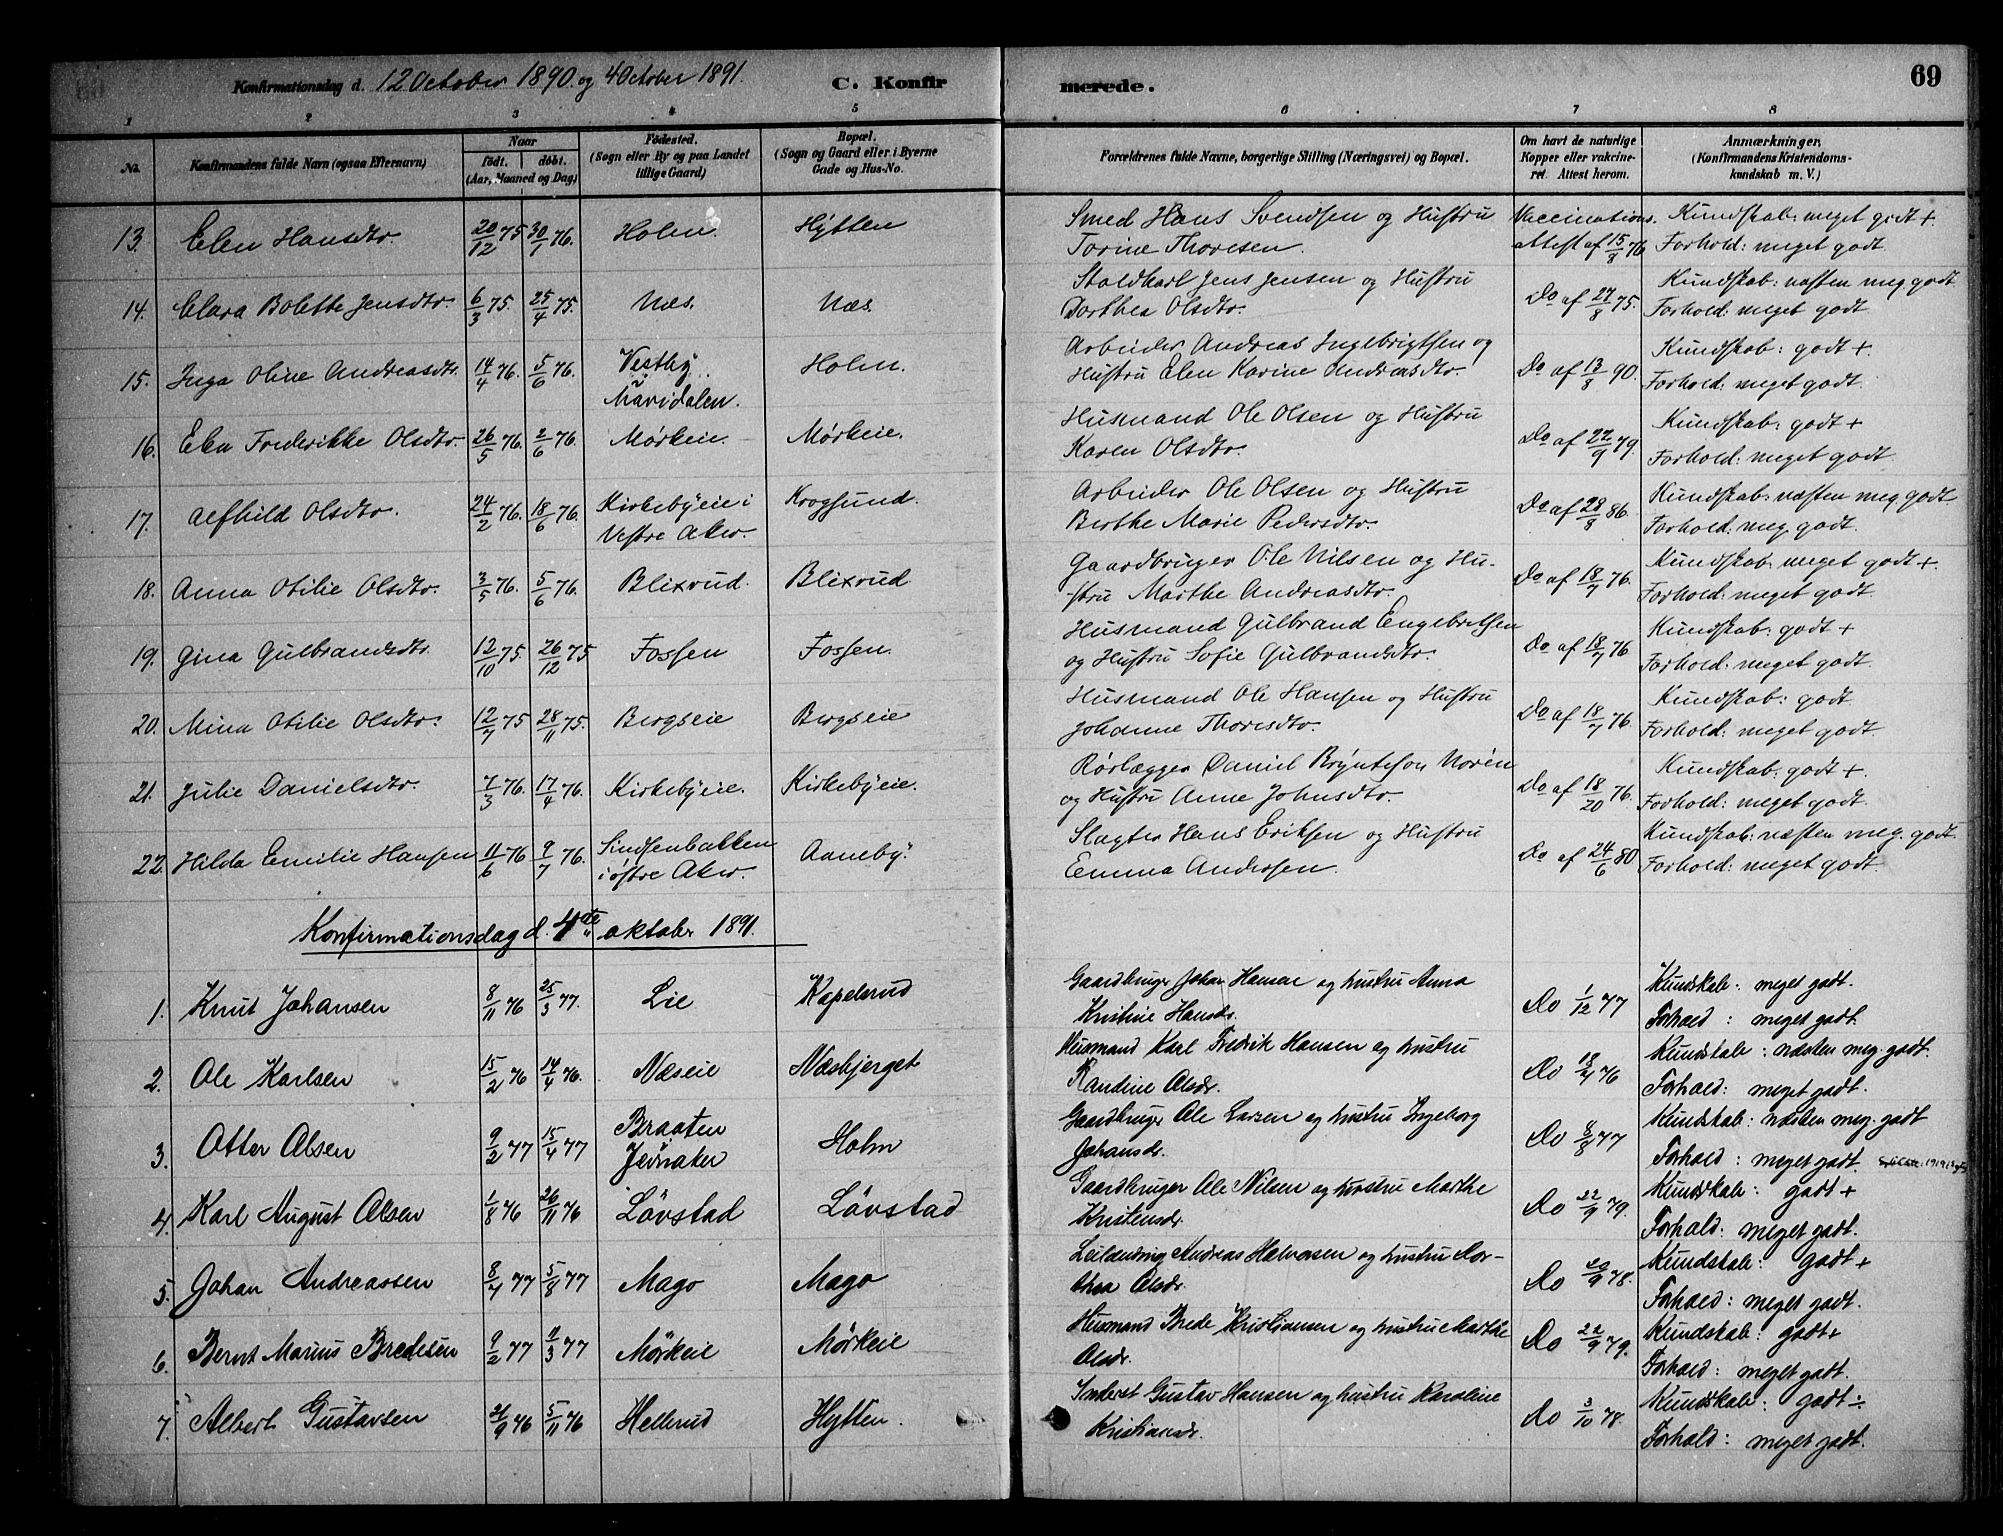 69
Konfirmationsdag d. 12 October 1890. og 4 October 1891.
C. Konfirmerede.
1 2 3 4 5 6 7 8
No. Konfirmandens fulde Navn (ogsaa Efternavn) Naar født. døbt. (Aar, Maaned og Dag) Fødested. (Sogn eller By og paa Landet tillige Gaard) Bopæl. (Sogn og Gaard eller i Byerne Gade og Hus-No. Forældrenes fulde Navne, borgerlige Stilling (Næringsvei) og Bopæl. Om havt de naturlige Kopper eller vakcineret. Attest herom. Anmærkninger. (Konfirmandens Kristendomskundskab m. V.)
13. Elen Hansdtr. 20/12 75 30/7 76. Holm. Hytten Smed Hans Svendsen og Hustru Vaccinations. Kundskab: meget godt +
Torine Thoresen. attest af 15/8 76 Forhold: meget godt
14. Clara Bolette Jensdtr. 6/3 75. 25/4 75. Næs. Næs. Staldkarl Jens Jensen og Hustru Do af 27/8 75. Kundskab: næsten meg godt
Dorthea Olsdtr. Forhold: meget godt
15. Inga Oline Andreasdtr. 14/4 76. 5/6 76. Vestby Holm. Arbeider Andreas Ingebrigtsen og Do af 13/8 90. Kundskab: godt +
Maridalen. Hustru Elen Karine Andreasdtr. Forhold: meget godt.
16. Elea Frederikke Olsdtr. 26/5 76. 2/6 76. Mørkeie. Mørkeie. Husmand Ole Olsen og Hustru Do af 22/9 79. Kundskab: godt +
Karen Olsdtr. Forhold: meget godt.
17. Alfhild Olsdtr. 24/2 76. 18/6 76. Kirkebyeie i Krogsund. Arbeider Ole Olsen og Hustru Do af 28/8 86. Kundskab: næsten meg. godt
Vestre Aker. Berthe Marie Pedersdtr. Forhold: meg. godt.
18. Anna Otilie Olsdtr. 3/5 76. 5/6 76. Blixrud. Blixrud Gaardbruger Ole Nilsen og Hu- Do af 18/7 76. Kundskab: meget godt +.
stru Marthe Andreasdtr. Forhold: meget godt.
19. Gina Gulbrandsdtr. 12/10 75. 26/12 75 Fossen Fossen. Husmand Gulbrand Engebretsen Do af 18/7 76 Kundskab: godt +
og Hustru Sofie Gulbrandsdtr. Forhold: meget godt.
20. Mina Otilie Olsdtr. 12/7 75 28/11 75. Bergseie Bergseie Husmand Ole Hansen og Hustru Do af 18/7 76. Kundskab: godt.
Johanne Thoresdtr. Forhold: meget godt
21. Julie Danielsdtr. 7/3 76. 17/4 76. Kirkebyeie. Kirkebyeie. Rørlægger Daniel Brynteson Norén Do af 18/20 76. Kundskab: godt +.
og Hustru Anne Johnsdtr. Forhold: meget godt.
22. Hilda Emilie Hansen 11/6 76 9/7 76. Sindsenbakken Aaneby. Slagter Hans Eriksen og Hustru Do af 24/6 80 Kundskab: næsten meg. godt.
i østre Aker. Emma Andersen. Forhold: meget godt.
Konfirmationsdag d. 4de oktober 1891.
1. Knut Johansen 8/11 76 25/3 77. Lie Kapelsrud Gaardbruger Johan Hansen og hustru Anna Do 1/12 77 Kundskab: meget godt.
Kristine Hansdr. Forhold: meget godt.
2. Ole Karlsen 15/2 76 14/4 76. Næseie Næsbjerget Husmand Karl Fredrik Hansen og hustru Do 18/4 76 Kundskab: næsten meg. godt.
Randine Olsdr. Forhold: meget godt.
3. Otter Olsen 9/2 77 15/4 77 Braaten Holm Gaardbruger Ole Larsen og hustru Ingeborg Do 8/8 77 Kundskab: næsten meg. godt
Jevnaker Johansdr. Forhold: meget godt.
4. Karl August Olsen 1/8 76 26/11 76 Lövstad Lövstad Gaardbruger Ole Nilsen og hustru Marthe Do 22/9 79. Kundskab: godt +
Kristensdr. Forhold: meget godt.
5. Johan Andreassen 8/4 77 5/8 77 Mago Mago Leilænding Andreas Halvorsen og hustru Dor- Do 20/9 78. Kundskab: godt +
thea Olsdr. Forhold: meget godt.
6. Bernt Marius Bredesen 9/2 77 4/3 77 Mörkeie Mörkeie Husmand Brede Kristiansen og hustru Marthe Do 22/9 79. Kundskab: godt +
Olsdr. Forhold: meget godt.
7. Albert Gustavsen 21/9 76 5/11 76 Hellerud Hytten. Inderst Gustav Hansen og hustru Karoline Do 3/10 78. Kundskab: godt ÷
Kristiansdr. Forhold: meget godt.